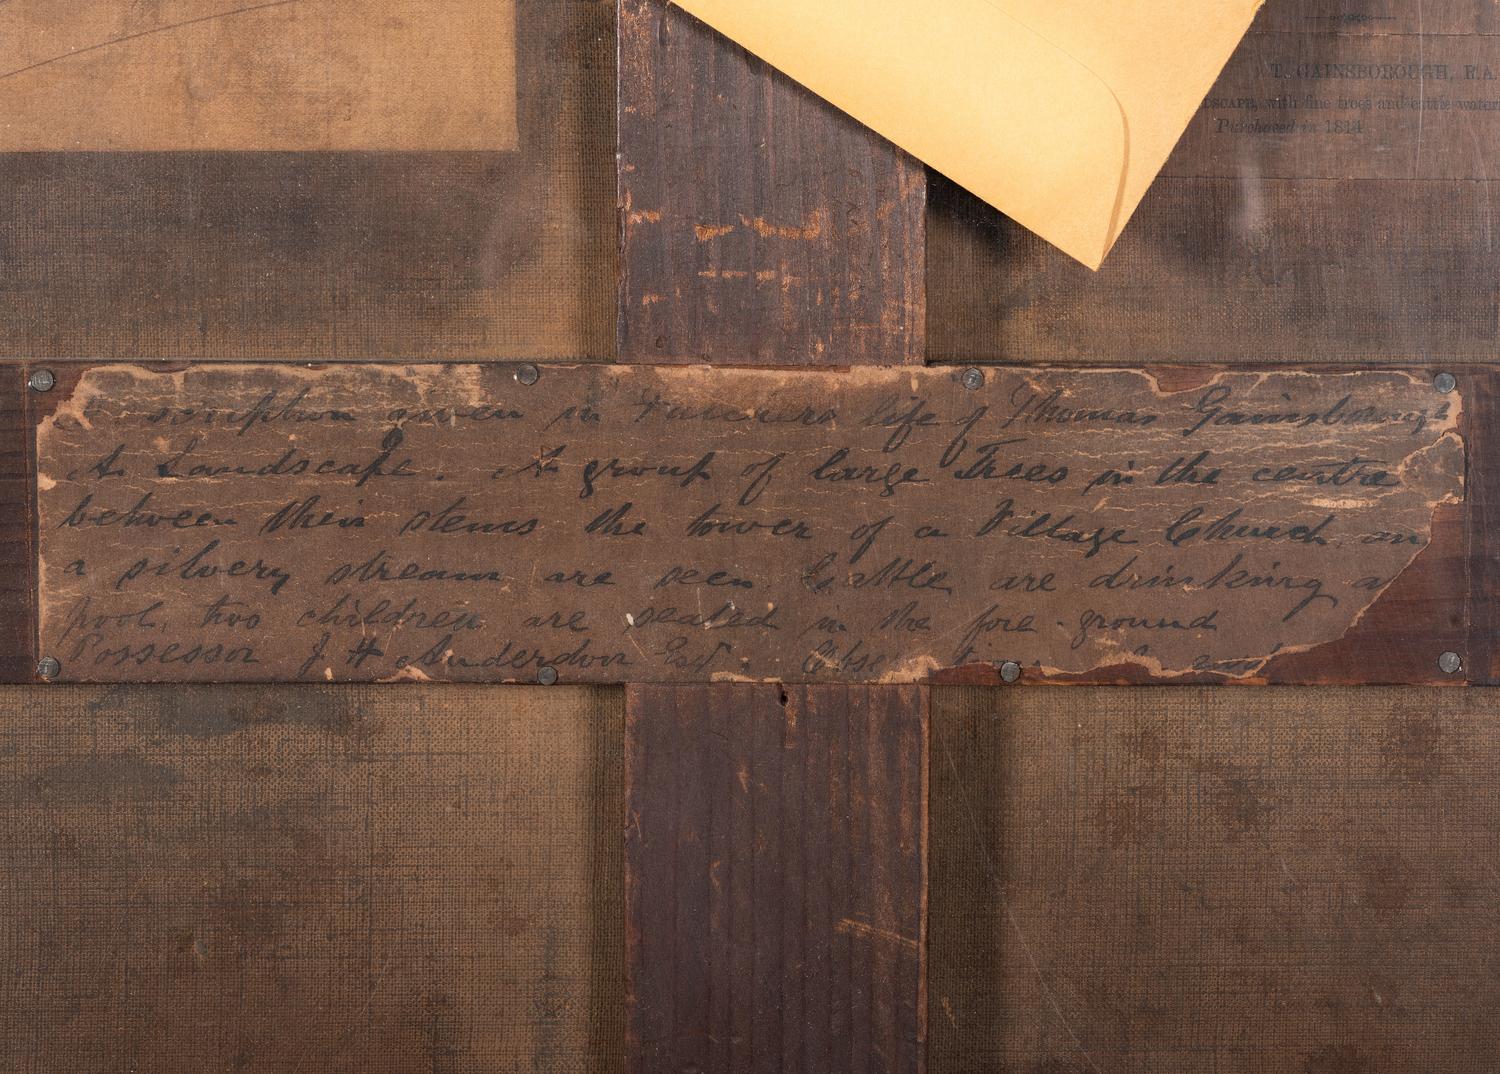 T. GAINSBOROUGH, R.A.
DSCAPE, with fine trees and cattle water
Purchased in 1814
scription given in Fulchers life of Thomas Gainsborough
A Landscape. A group of large Trees in the centre
between their stems the tower of a Village Church, an
a silvery stream are seen. Cattle are drinking a
pool, two children are seated in the fore-ground
Possessor J H Anderdon Esqr.